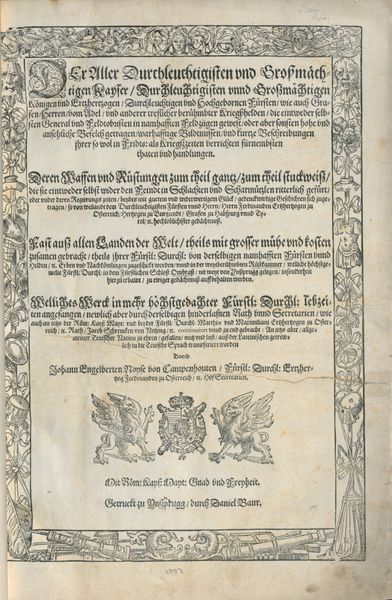 DEr Aller Durchleuchtigisten vnd Großmäch-
tigen Kayser / Durchleuchtigisten vnnd Großmächtigen
Königen vnd Ertzhertzogen / Durchleuchtigen vnd Hochgebornen Fürsten / wie auch Gra-
fen / Herren / vom Adel / vnd anderer treflicher berühmbter Kriegßhelden / die eintweder selb-
sten General vnd Feldtobristen in namhafften Feldzügen gewest / oder aber sonsten hohe vnd
ansehliche Befelch getragen / warhafftige Bildtnussen / vnd kurtze Beschreibungen
jhrer so wol in Fridts: als Kriegßzeiten verrichten fürnembsten
thaten vnd handlungen.
Deren Waffen vnd Rüstungen zum theil gantz / zum theil stuckweiß /
die sie eintweder selbst wider den Feindt in Schlachten vnd Scharmützlen ritterlich gefürt /
oder vnder deren Regierung
Herren / Herrn Ferdinanden Ertzhertzogen zu
Osterreich / Hertzogen zu Burgundt / Grafen zu Habspurg vnnd Ty-
rol / ꝛc. hochlöblichister gedächtnuß.
Fast auß allen Landen der Welt / theils mit grosser mühe vnd kosten
zusamen gebracht / theils jhrer Fürstl: Durchl: von derselbigen namhafften Fürsten vnnd
Helden / ꝛc. Erben vnd Nachkömlingen zugeschickt worden
hier zu erbaut / zu ewiger gedächtnuß auffbehalten werden.
Welliches Werck in mehr höchstgedachter Fürstl: Durchl: lebzei-
ten angefangen / newlich aber durch derselbigen hinderlaßnen Rath vnnd Secretarien / wie
auch an jetzo der Röm: Kays: Mayt: vnd beeder Fürstl: Durchl: Matthiæ vnd Maximiliani Ertzhertzogen zu Oster-
reich / ꝛc. Rath / Jacob Schrencken von Notzing / ꝛc. continuiert vnnd zu end gebracht: An jetzo aber / allge-
mainer Teutscher Nation zu ehren / gefallen / nutz vnd lust / auß der Lateinischen getrew-
lich in die Teutsche Sprach transferiert worden
Durch
Johann Engelberten Noyse von Campenhouten / Fürstl: Durchl: Ertzher-
tzog Ferdinanden zu Osterreich / ꝛc. Hof Secretarien.
Mit Röm: Kays: Mayt: Gnad vnd Freyheit.
Getruckt zu Ynßprugg / durch Daniel Baur.